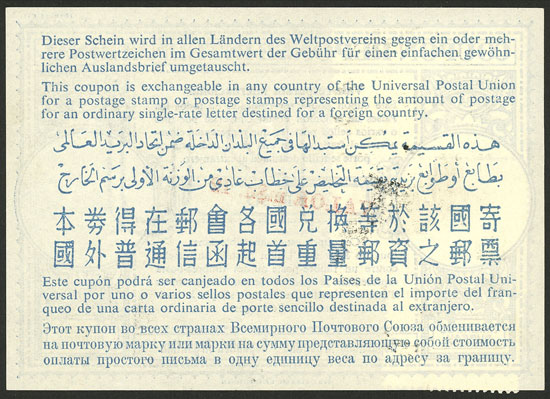 Dieser Schein wird in allen Ländern des Weltpostvereins gegen ein oder meh-
rere Postwertzeichen im Gesamtwert der Gebühr für einen einfachen gewöhn-
lichen Auslandsbrief umgetauscht.
This coupon is exchangeable in any country of the Universal Postal Union
for a postage stamp or postage stamps representing the amount of postage
for an ordinary single-rate letter destined for a foreign country.
هذه القسيمة يمكن استبدالها في جميع البلدان الداخلة ضمن اتحاد البريد العالمى
بطابع أو طوابع بريد قيمة التخليص على خطابات عادى من الوزنة الأولى برسم الخارج
本券得在郵會各國兌換等於該國寄
國外普通信函起首重量郵資之郵票
Este cupón podrá ser canjeado en todos los Países de la Unión Postal Uni-
versal por uno o varios sellos postales que representen el importe del fran-
queo de una carta ordinaria de porte sencillo destinada al extranjero.
Этот купон во всех странах Всемирного Почтового Союза обменивается
на почтовую марку или марки на сумму представляющую собой стоимость
оплаты простого письма в одну единицу веса по адресу за границу.